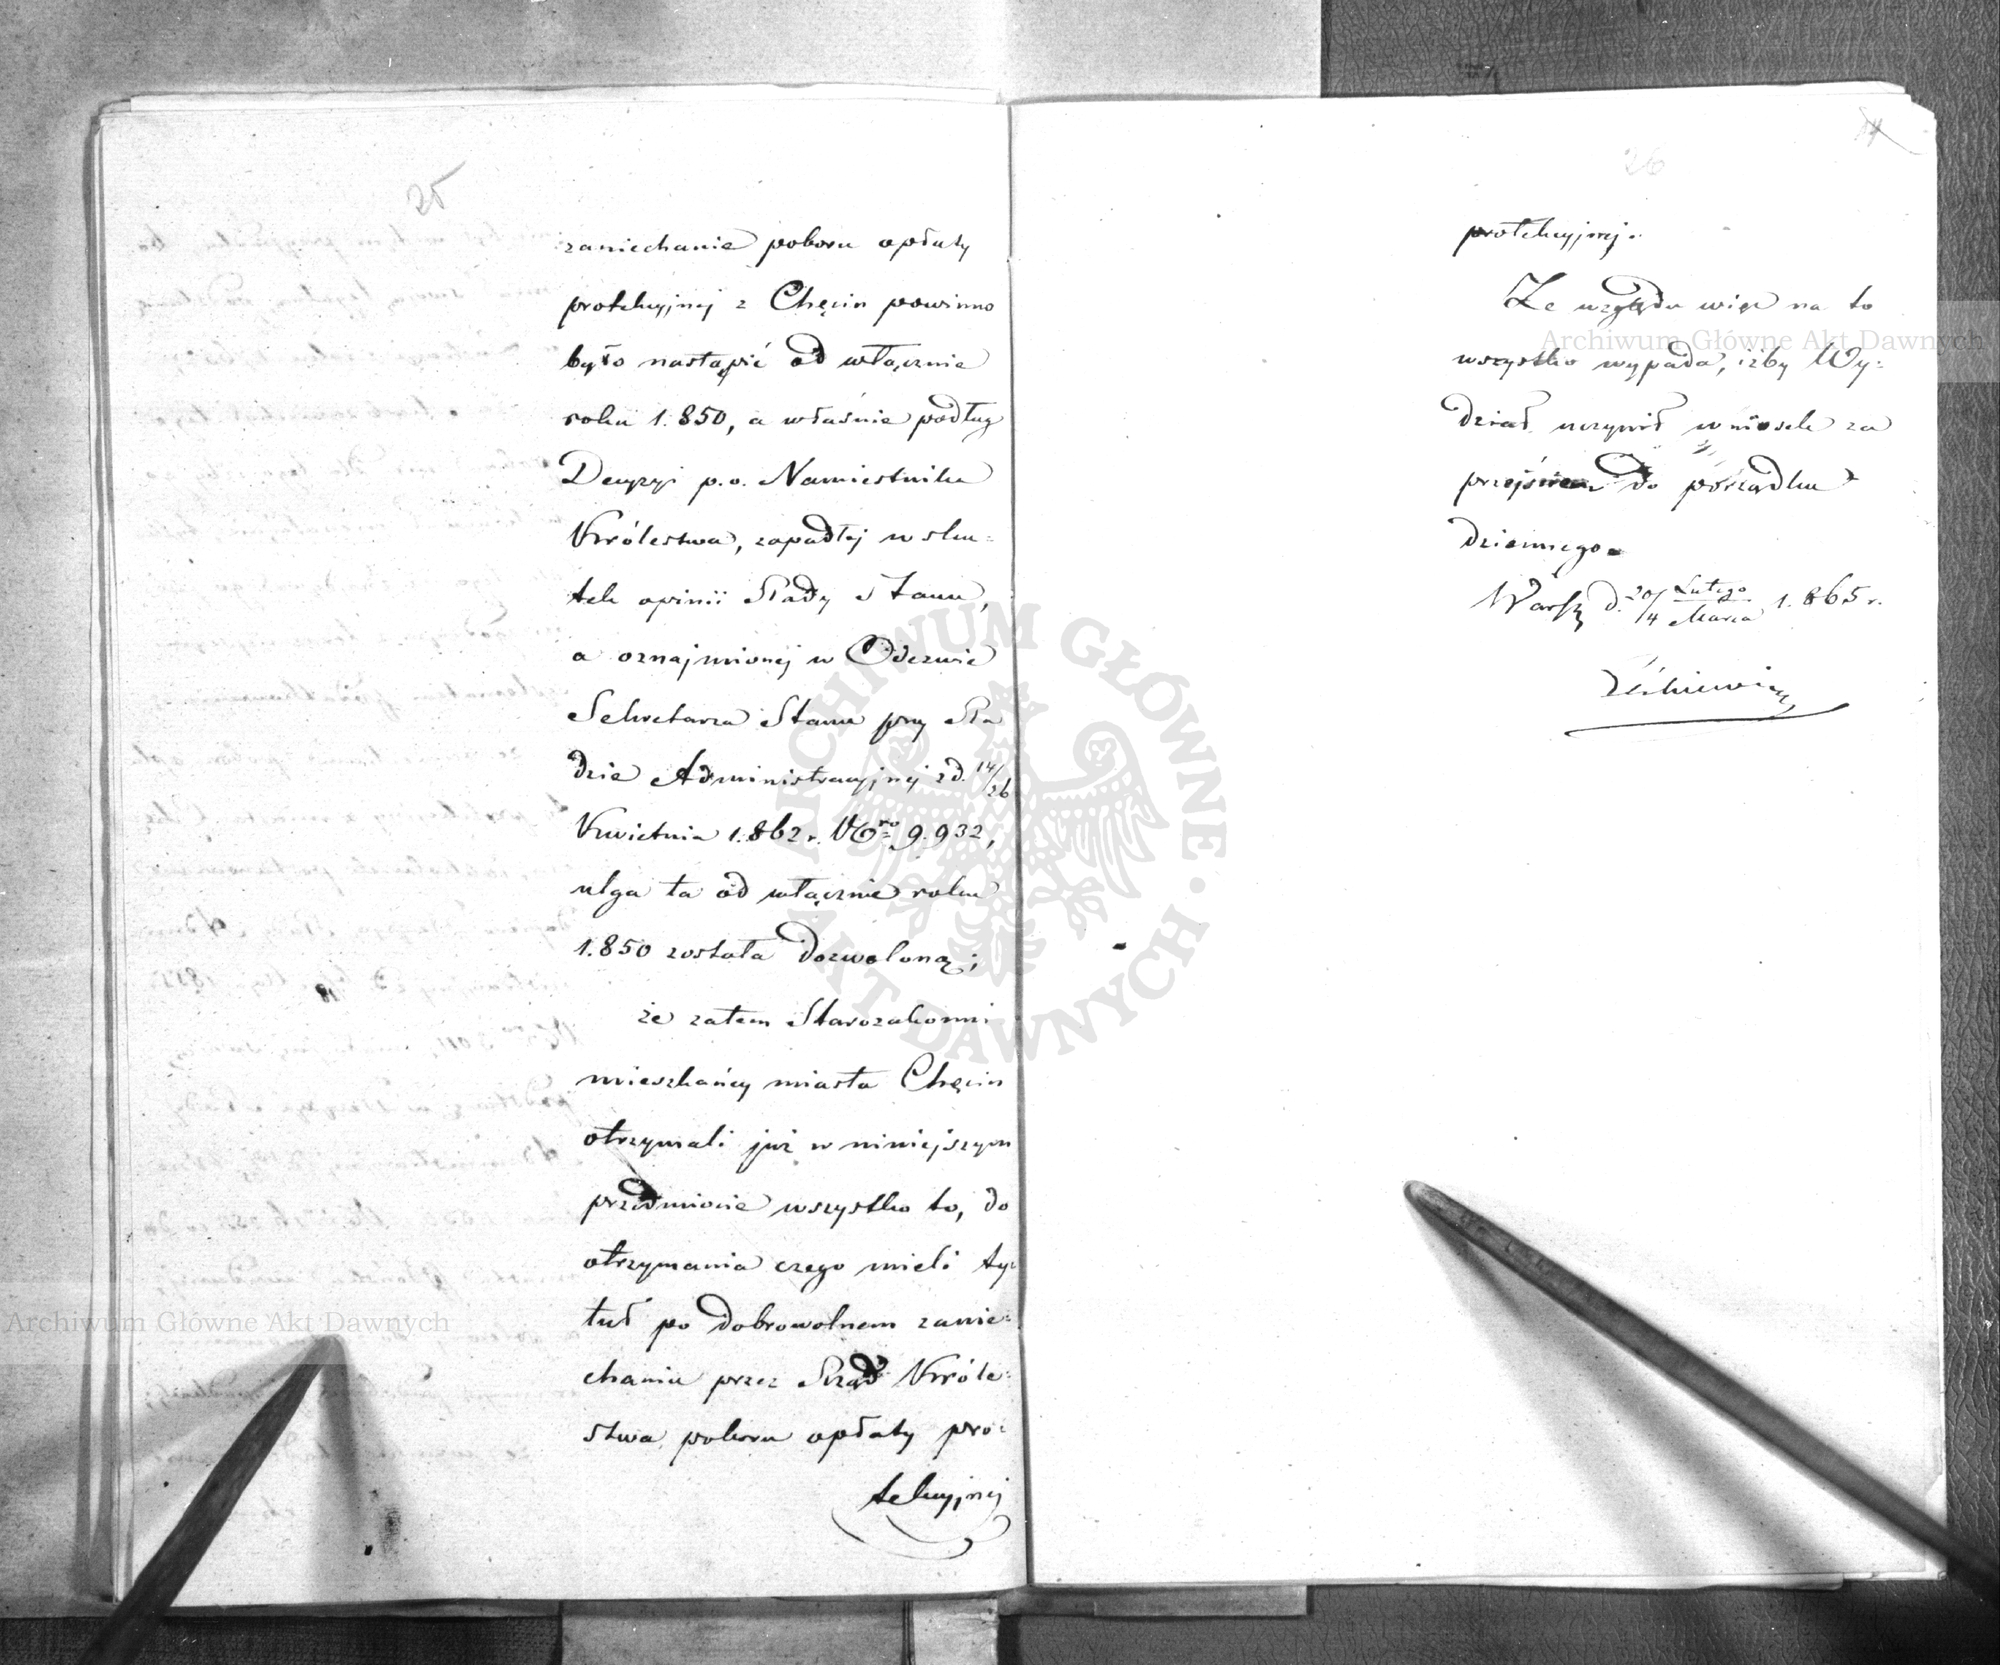 25
zaniechanie poboru opłaty
protekcyjnej z Chęcin powinno
było nastąpić od włącznie
roku 1.850, a właśnie podług
Decyzyi p.o. Namiestnika
Królestwa, zapadłej w sku=
tek opinii Rady Stanu,
a oznajmionej w Odezwie
Sekretarza Stanu przy Ra
dzie Administracyjnej z d. 14/26
Kwietnia 1.862 r. Nro 9.932,
ulga ta od włącznie roku
1.850 została dozwoloną;
że zatem Starozakonni
mieszkańcy miasta Chęcin
otrzymali już w niniejszym
przedmiocie wszystko to, do
otrzymania czego mieli ty=
tuł po dobrowolnem zanie=
chaniu przez Rząd Króle=
stwa poboru opłaty pro=
tekcyjnej
26
protekcyjnej.
Ze względu więc na to
wszystko wypada, iżby Wy=
dział uczynił wniosek za
przejściem do porządku
dziennego.
Warsz d. 20/4 Lutego/Marca 1.865 r.
Archiwum Główne Akt Dawnych
Archiwum Główne Akt Dawnych
ARCHIWUM GŁÓWNE AKT DAWNYCH